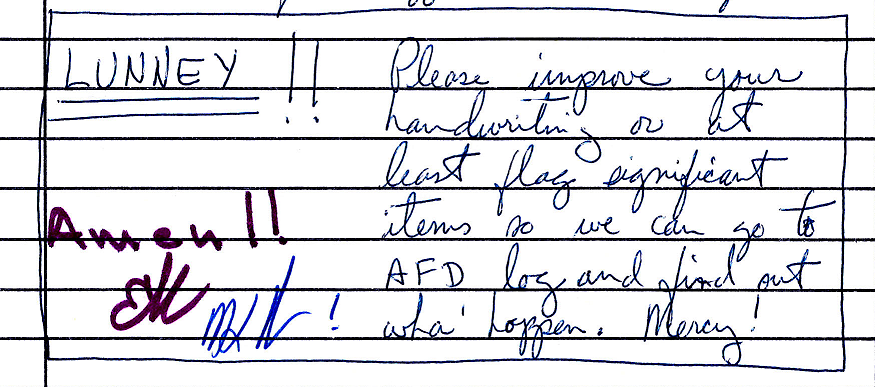 LUNNEY !! Please improve your
handwriting or at
least flag significant
items so we can go to
Amen!!
AFD log and find out
wha' happen. Mercy!